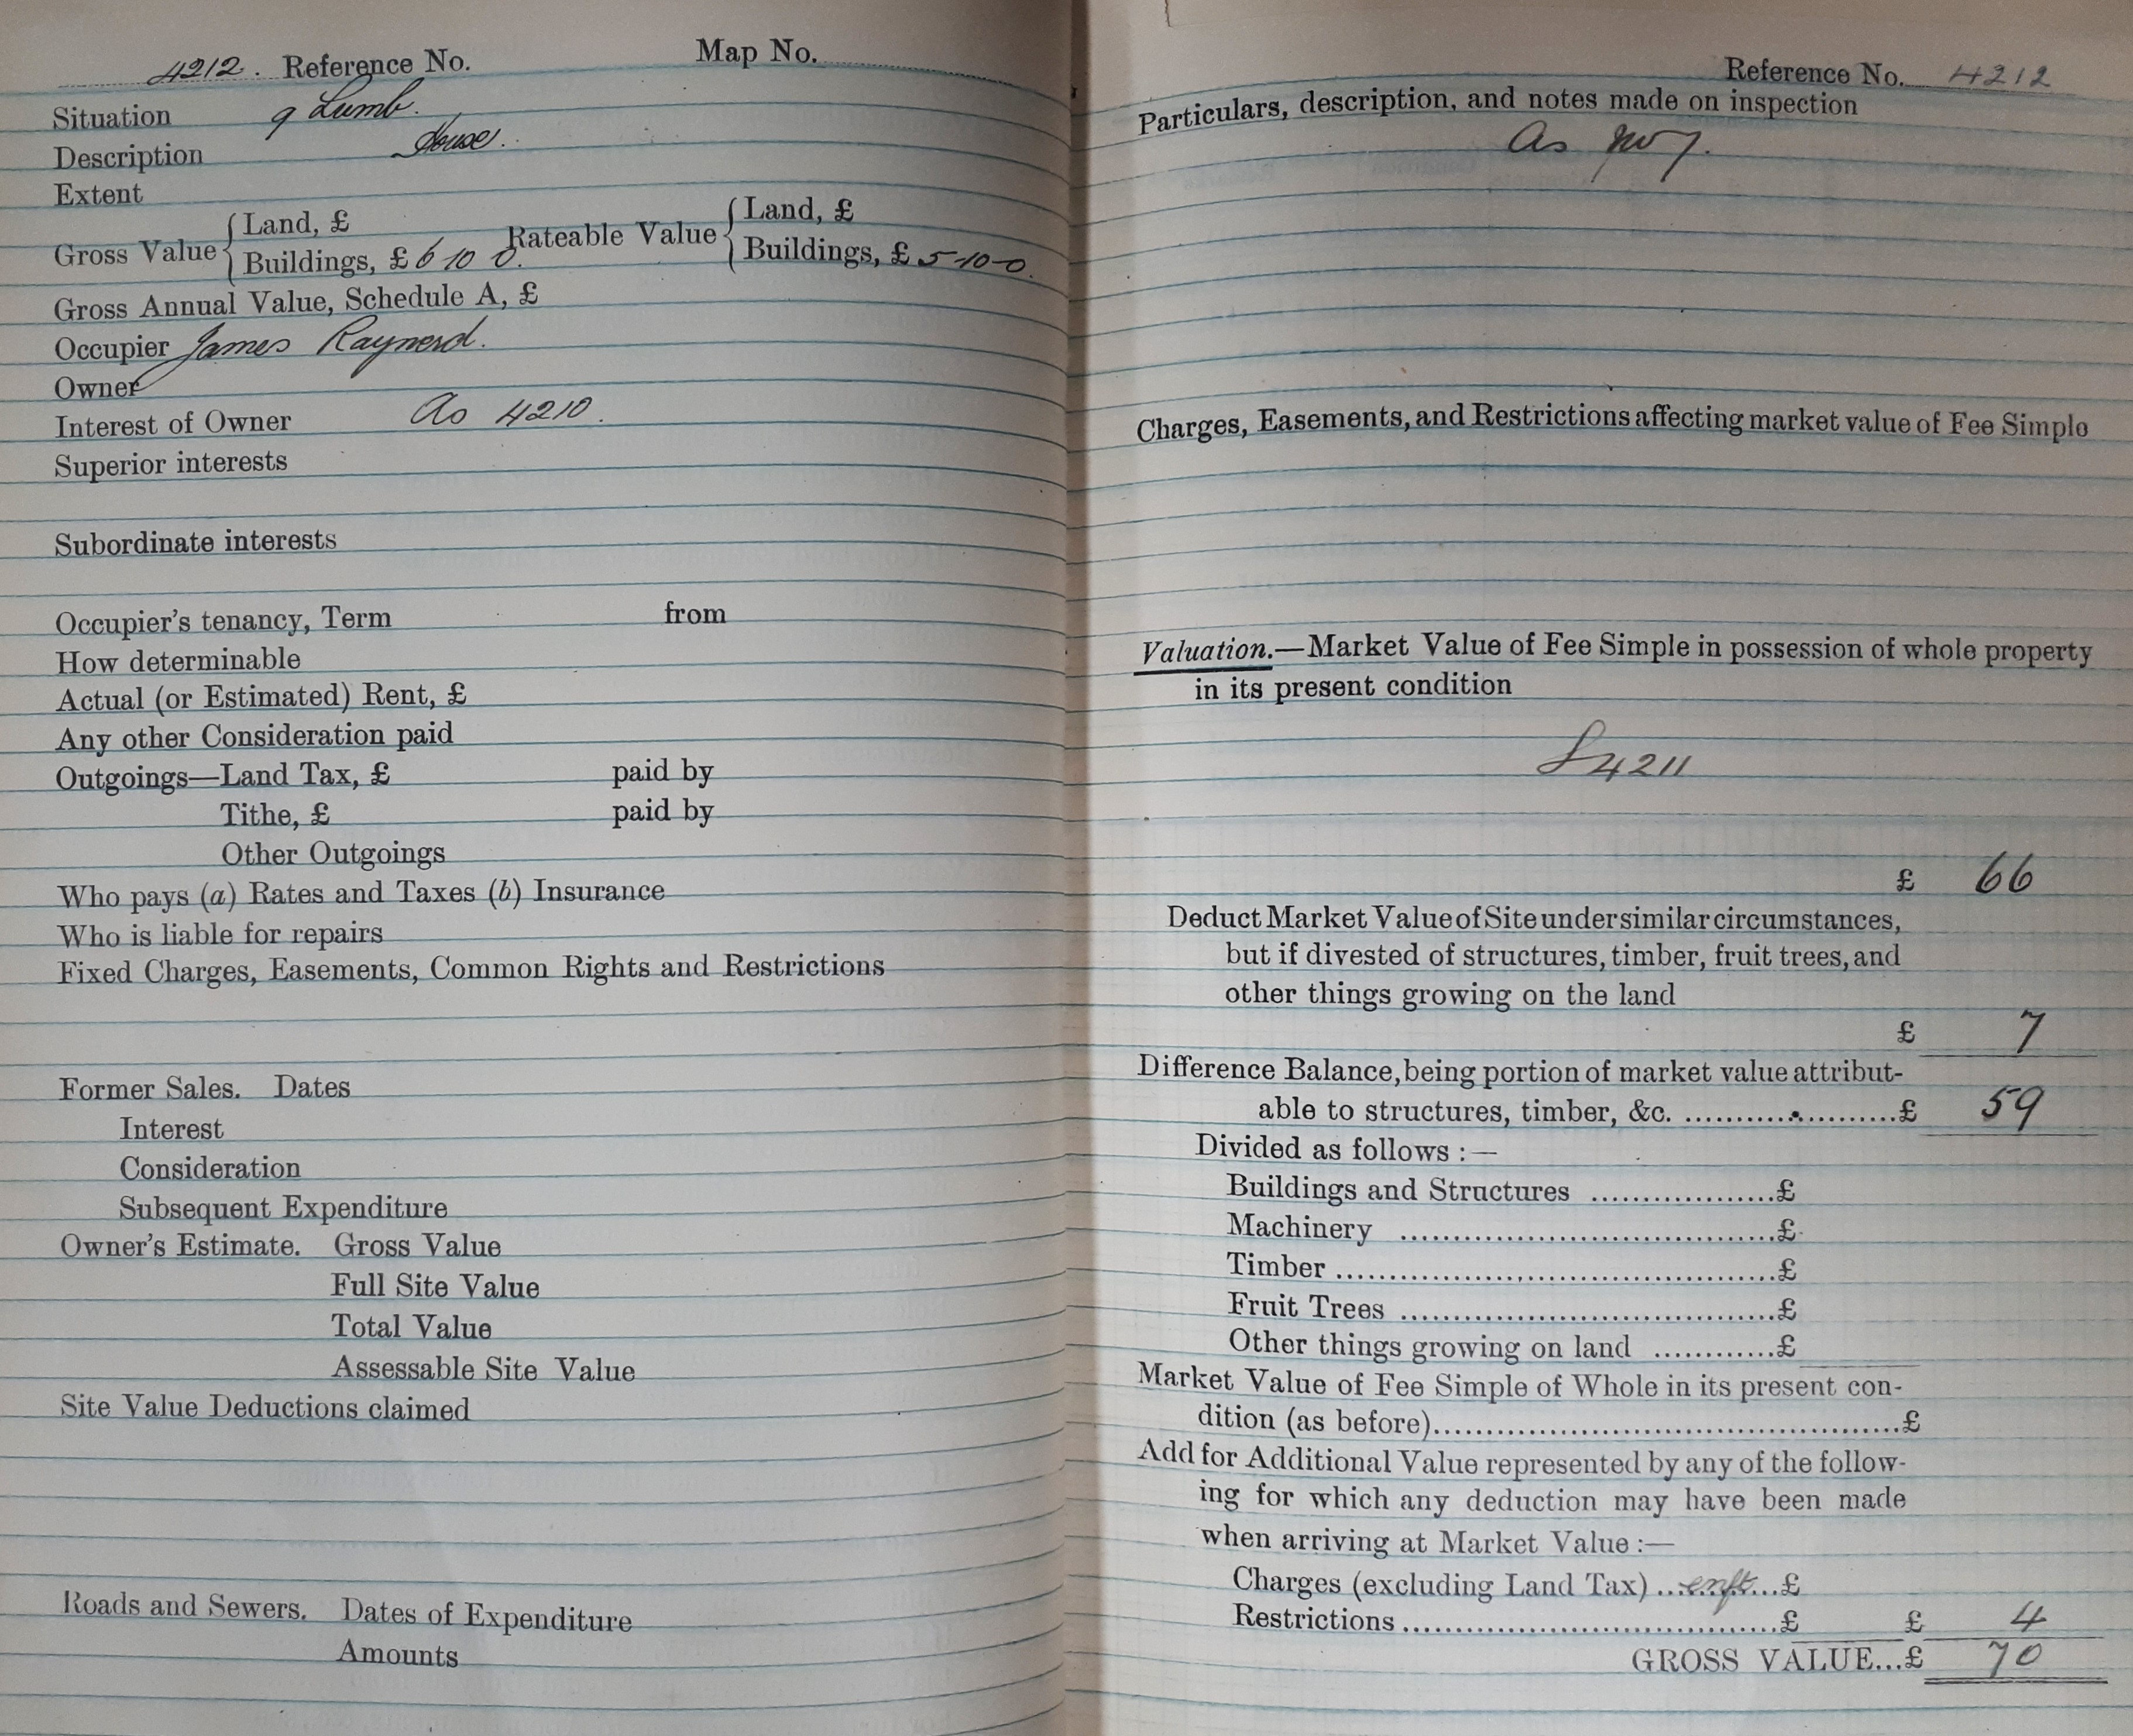 4212. Reference No. Map No.
Situation 9 Lumb.
Description House.
Extent
Gross Value { Land, £ Rateable Value { Land, £
Buildings, £ 6 10 0. Buildings, £ 5-10-0.
Gross Annual Value, Schedule A, £
Occupier James Raynerd.
Owner
Interest of Owner As 4210.
Superior interests
Subordinate interests
Occupier's tenancy, Term from
How determinable
Actual (or Estimated) Rent, £
Any other Consideration paid
Outgoings—Land Tax, £ paid by
Tithe, £ paid by
Other Outgoings
Who pays (a) Rates and Taxes (b) Insurance
Who is liable for repairs
Fixed Charges, Easements, Common Rights and Restrictions
Former Sales. Dates
Interest
Consideration
Subsequent Expenditure
Owner's Estimate. Gross Value
Full Site Value
Total Value
Assessable Site Value
Site Value Deductions claimed
Roads and Sewers. Dates of Expenditure
Amounts
Reference No. 4212
Particulars, description, and notes made on inspection
As
Charges, Easements, and Restrictions affecting market value of Fee Simple
Valuation.—Market Value of Fee Simple in possession of whole property
in its present condition
4211
£ 66
Deduct Market Value of Site under similar circumstances,
but if divested of structures, timber, fruit trees, and
other things growing on the land
£ 7
Difference Balance, being portion of market value attribut-
able to structures, timber, &c. ....................£ 59
Divided as follows :—
Buildings and Structures ..................£
Machinery ....................................£
Timber ..........................................£
Fruit Trees ....................................£
Other things growing on land ............£
Market Value of Fee Simple of Whole in its present con-
dition (as before)............................................£
Add for Additional Value represented by any of the follow-
ing for which any deduction may have been made
when arriving at Market Value :—
Charges (excluding Land Tax) ...£
Restrictions ....................................£ £ 4
GROSS VALUE...£ 70